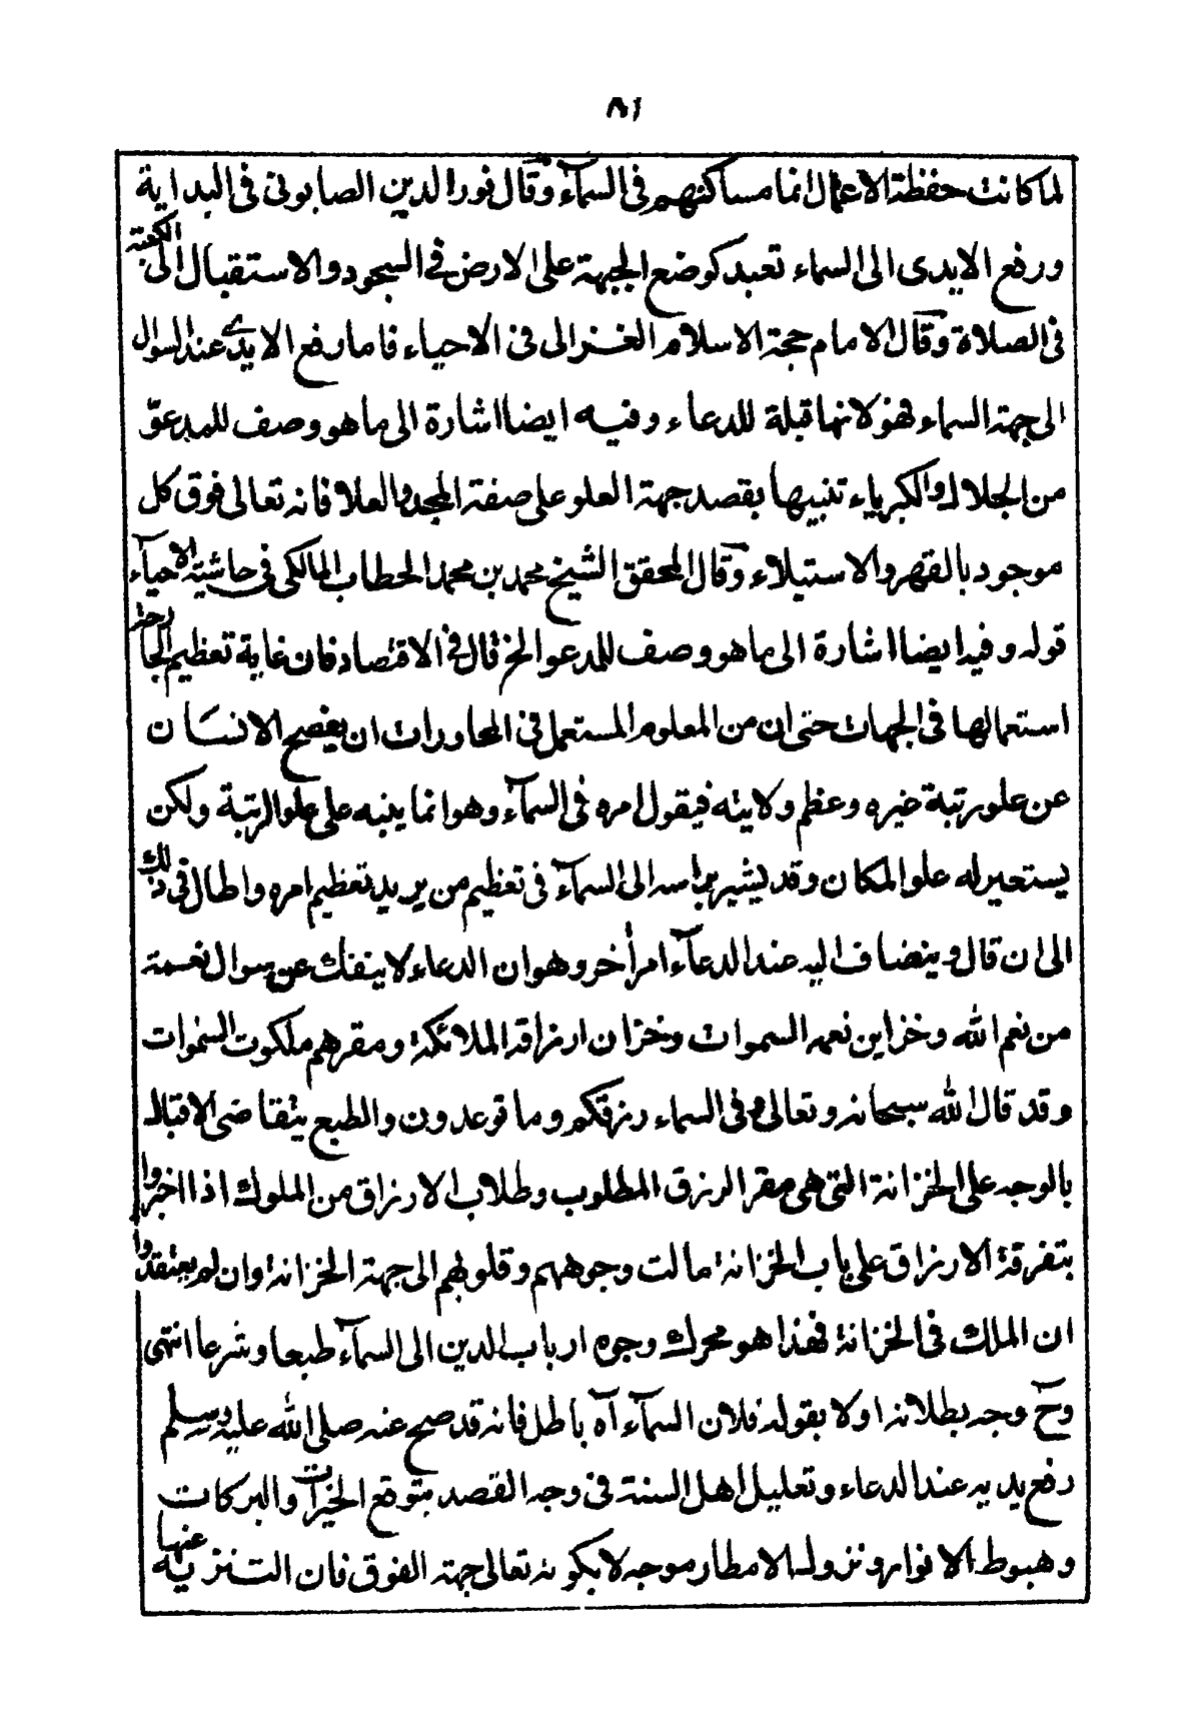 ٨١
لما كانت حفظة الاعمال انما مساكنهم فى السمآء وقال نور الدين الصابونى فى البداية
ورفع الايدى الى السماء تعبد كوضع الجبهة على الارض فى السجود والاستقبال الى الكعبة
فى الصلاة وقال الامام حجة الاسلام الغزالى فى الاحياء فاما رفع الايدى عند السوال
الى جهة السماء فهو لانها قبلة للدعاء وفيه ايضا اشارة الى ما هو وصف للمدعوّ
من الجلال والكبرياء تنبيها بقصد جهة العلو على صفة المجد والعلا فانه تعالى فوق كل
موجود بالقهر والاستيلاء وقال المحقق الشيخ محمد بن محمد الحطاب المالكى فى حاشية الاحيآء
قوله وفيه ايضا اشارة الى ما هو وصف للمدعو الخ قال فى الاقتصاد فان غاية تعظيم الجارحة
استعمالها فى الجهات حتى ان من المعلوم المستعمل فى المحاورات ان يفصح الانسان
عن علو رتبة غيره وعظم ولايته فيقول امره فى السمآء وهو انما ينبه على علو الرتبة ولكن
يستعير له علو المكان وقد يشير براسه الى السمآء فى تعظيم من يريد تعظيم امره واطال فى ذلك
الى ان قال وينضاف اليه عند الدعآء امر أخر وهو ان الدعاء لا ينفك عن سوال نعمة
من نعم الله وخزاين نعمه السموات وخزان ارزاقه الملائكة ومقرهم ملكوت السموات
وقد قال الله سبحانه وتعالى وفى السماء رزقكم وما توعدون والطبع يتقاضى الاقبال
بالوجه على الخزانة التى هى مقر الرزق المطلوب وطلاب الارزاق من الملوك اذا اخبروا
بتفرقة الارزاق على باب الخزانة مالت وجوههم وقلوبهم الى جهة الخزانة وان لم يعتقدوا
ان الملك فى الخزانة فهذا هو محرك وجوه ارباب الدين الى السمآء طبعا وشرعا انتهى
وحٓ وجه بطلانه اولا بقوله فلان السمآء آه باطل فانه قد صح عنه صلى الله عليه وسلم
رفع يديه عند الدعاء وتعليل اهل السنة فى وجه القصد بتوقع الخيرات والبركات
وهبوط الانوار ونزول الامطار موجه لا بكونه تعالى جهة الفوق فان التنزيه عنها